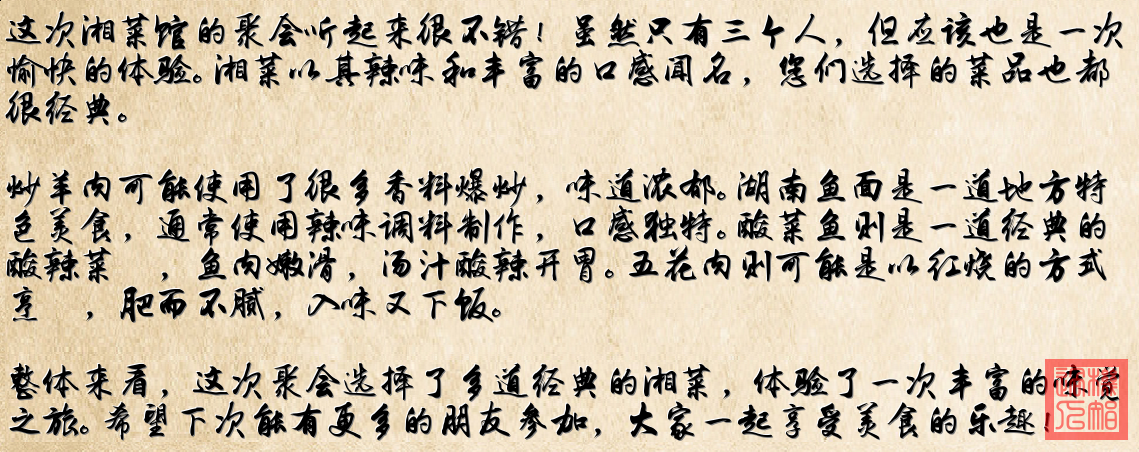 这次湘菜馆的聚会听起来很不错！虽然只有三个人，但应该也是一次
愉快的体验。湘菜以其辣味和丰富的口感闻名，您们选择的菜品也都
很经典。
炒羊肉可能使用了很多香料爆炒，味道浓郁。湖南鱼面是一道地方特
色美食，通常使用辣味调料制作，口感独特。酸菜鱼则是一道经典的
酸辣菜　，鱼肉嫩滑，汤汁酸辣开胃。五花肉则可能是以红烧的方式
烹　，肥而不腻，入味又下饭。
整体来看，这次聚会选择了多道经典的湘菜，体验了一次丰富的味觉
之旅。希望下次能有更多的朋友参加，大家一起享受美食的乐趣！